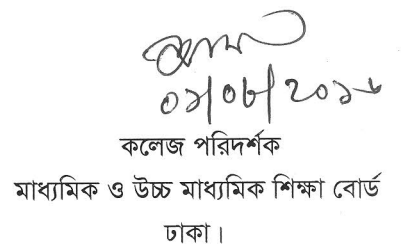 ০১/০৮/২০১৬
কলেজ পরিদর্শক
মাধ্যমিক ও উচ্চ মাধ্যমিক শিক্ষা বোর্ড
ঢাকা।